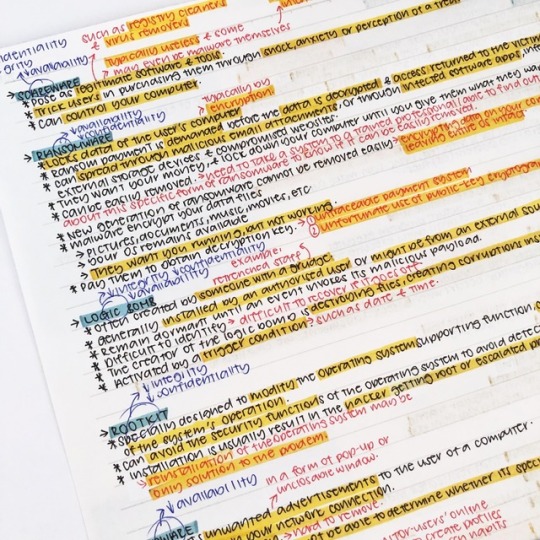 such as registry cleaners
& virus removers
identiality
grity
availability
Typically useless & some
may even be malware themselves
→ SCAREWARE
* Pose as legitimate software & tools.
* Trick users in purchasing them through shock, anxiety or perception of a
* can control your computer.
availability
confidentiality
Typically by
encryption
→ RANSOMWARE
* Locks data of the user's computer
* Ransom payment is demanded before the data is decrypted & access returned to the victim
* can spread through malicious email attachments, or through infected software apps,
external storage devices & compromised websites.
* They want your money, & lock down your computer until you give them what they want
* can be easily removed. → need to take a system to a trained professional/able to find out
about this specific form of ransomware to know if it can be easily removed.
* New generation of ransomware cannot be removed easily → encrypting data on your
leaving else as intact
* malware encrypt your data files
→ pictures, documents, music, movies, etc
→ your OS remains available
→ They want you running, but not working.
* Pay them to obtain decryption key.
① untraceable payment system
② unfortunate use of public-key cryptography
integrity
confidentiality
availability
example,
retrenched staff
→ LOGIC BOMB
* Often created by someone with a grudge.
* Generally installed by an authorised user or might be from an external
* Remain dormant until an event invokes its malicious payload.
* Difficult to identify → difficult to recover if it goes off
* The creator of the logic bomb is destroying files, creating corruptions
* Activated by a trigger condition → such as date & time.
integrity
confidentiality
→ ROOTKIT
* Specially designed to modify the operating system supporting function
of the system's operation.
* can avoid the security functions of the operating system to avoid
* installation is usually result in the hacker getting root or escalated
→ reinstallation of the operating system may be
only solution to the problem.
availability
in a form of pop-up or
unclosable window.
unwanted advertisements to the user of a computer.
your network connection.
→ hard to remove
not be able to determine whether its
users' online
create profiles
habits